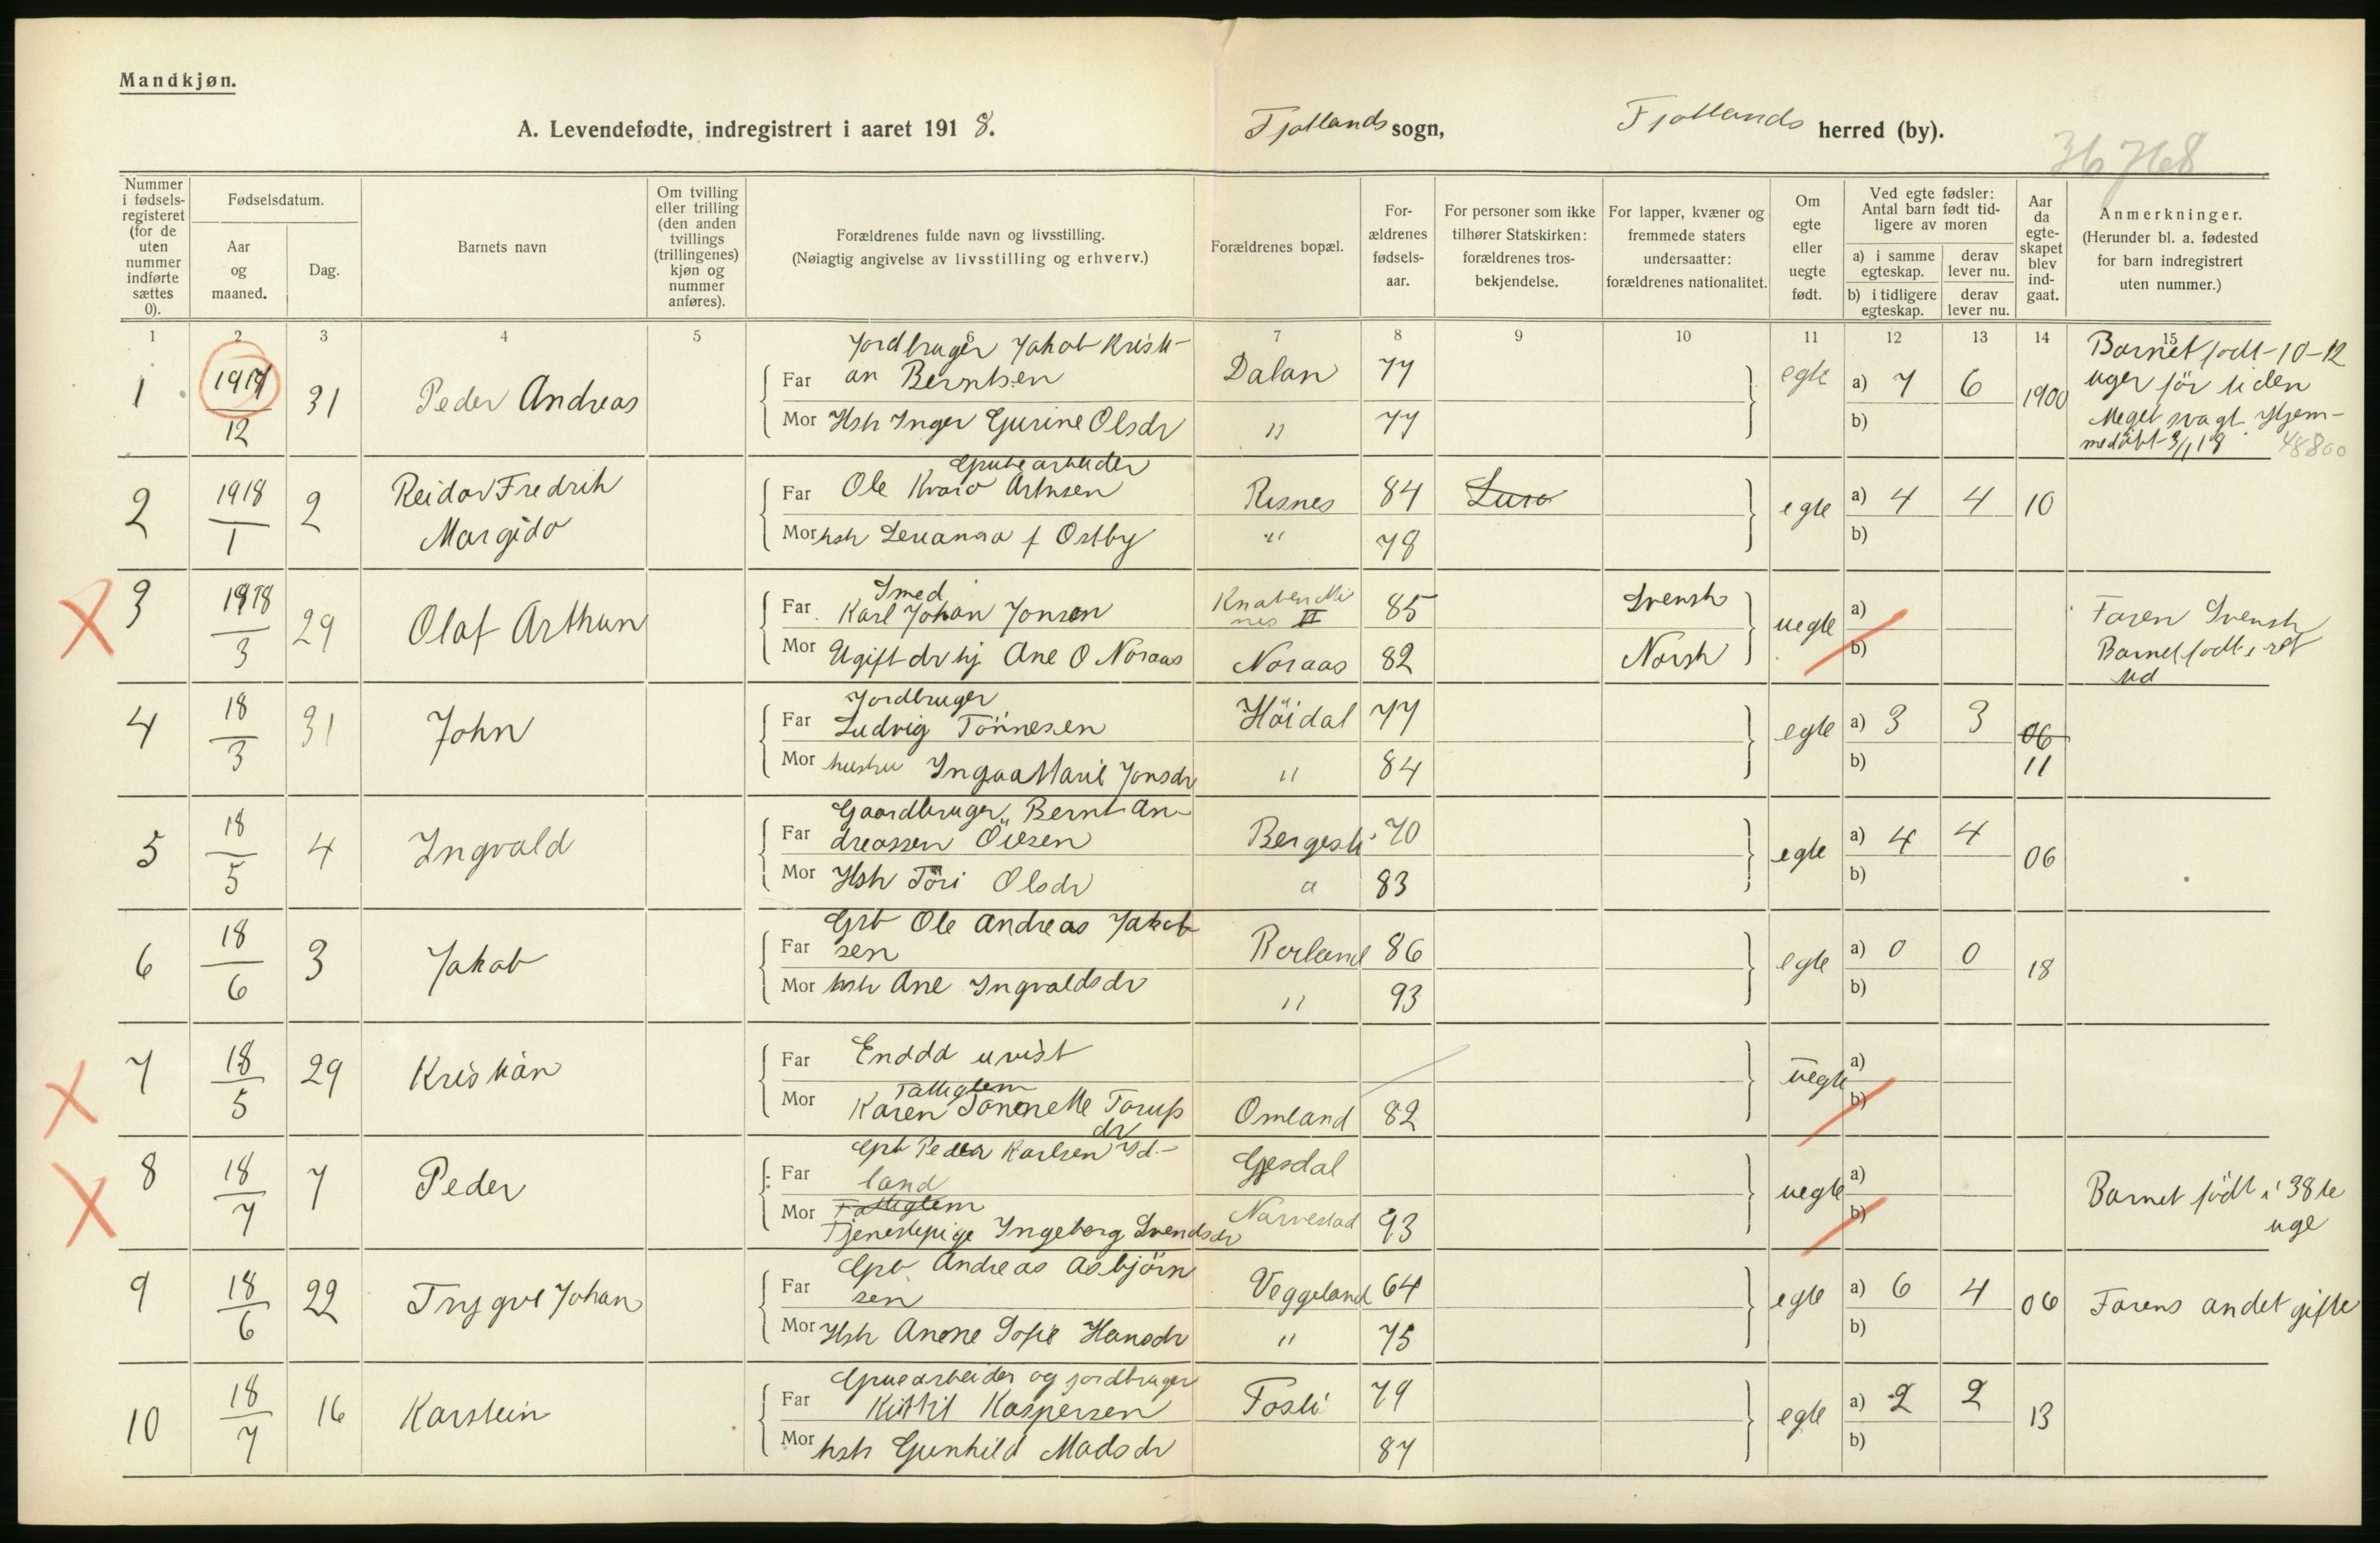 Mandkjøn.
A. Levendefødte, indregistrert i aaret 1918.
Fjotlands sogn,
Fjotlands herred (by).
36768
Nummer i fødsels-registeret (for de uten nummer indførte sættes 0).
Fødselsdatum.
Aar og maaned.
Dag.
Barnets navn
Om tvilling eller trilling (den anden tvillings (trillingenes) kjøn og nummer anføres).
Forældrenes fulde navn og livsstilling.
(Nøiagtig angivelse av livsstilling og erhverv.)
Forældrenes bopæl.
For-ældrenes fødsels-aar.
For personer som ikke tilhører Statskirken: forældrenes tros-bekjendelse.
For lapper, kvæner og fremmede staters undersaatter: forældrenes nationalitet.
Om egte eller uegte født.
Ved egte fødsler: Antal barn født tid-ligere av moren
a) i samme egteskap.
derav lever nu.
b) i tidligere egteskap.
derav lever nu.
Aar da egte-skapet blev ind-gaat.
Anmerkninger.
(Herunder bl. a. fødested for barn indregistrert uten nummer.)
1 2 3 4 5 6 7 8 9 10 11 12 13 14 15
1 1917/12 31 Peder Andreas
Far Jordbruger Jakob Kristi-
an Berntsen Dalan 77
Mor Hsh Inger Gurine Olsdr " 77
egte a) 7 6 1900
b)
Barnet født 10-12
uger før tiden
Meget svagt Hjem-
medöbt 3/1 18 48800
2 1918/1 2 Reidar Fredrik
Margido
Far Grubearbeider
Ole Arnsen Risnes 84
Mor hsh f Ostby " 78
egte a) 4 4 10
b)
3 1918/3 29 Olaf Arthur
Far Smed
Karl Johan Jonsen Knaben Mi
nes II 85 Svensk
Mor Ugift dr hj Ane O Noraas Noraas 82 Norsk
uegte a)
b)
Faren Svensk
Barnet født i
4 18/3 31 John
Far Jordbruger
Ludvig Tönnesen Höidal 77
Mor hustru Inga Marie Jonsdr " 84
egte a) 3 3 06
b) 11
5 18/5 4 Ingvald
Far Gaardbruger Bernt An-
dreassen Öiesen Bergesli 70
Mor Hsh Töri Olsdr " 83
egte a) 4 4 06
b)
6 18/6 3 Jakob
Far Grb Ole Andreas Jakob
sen Rorland 86
Mor hsh Ane Ingvaldsdr " 93
egte a) 0 0 18
b)
7 18/5 29 Kristian
Far Enddd uvist
Mor Fattiglem
Karen Tonnette Torup
dr Omland 82
uegte a)
b)
8 18/7 7 Peder
Far Grb Peder Karlsen Vd-
land Gjesdal
Mor Fattiglem
Tjenestepige Ingeborg Svendsdr Narvestad 93
uegte a)
b)
Barnet født i 38te
uge
9 18/6 22 Trygve Johan
Far Grb Andreas Asbjörn
sen Veggeland 64
Mor Hsh Anene Sofie Hansdr " 75
egte a) 6 4 06
b)
Farens andet gifte
10 18/7 16 Karstein
Far Gruearbeider og jordbruger
Kittil Kaspersen Fosli 79
Mor hsh Gunhild Madsdr 87
egte a) 2 2 13
b)